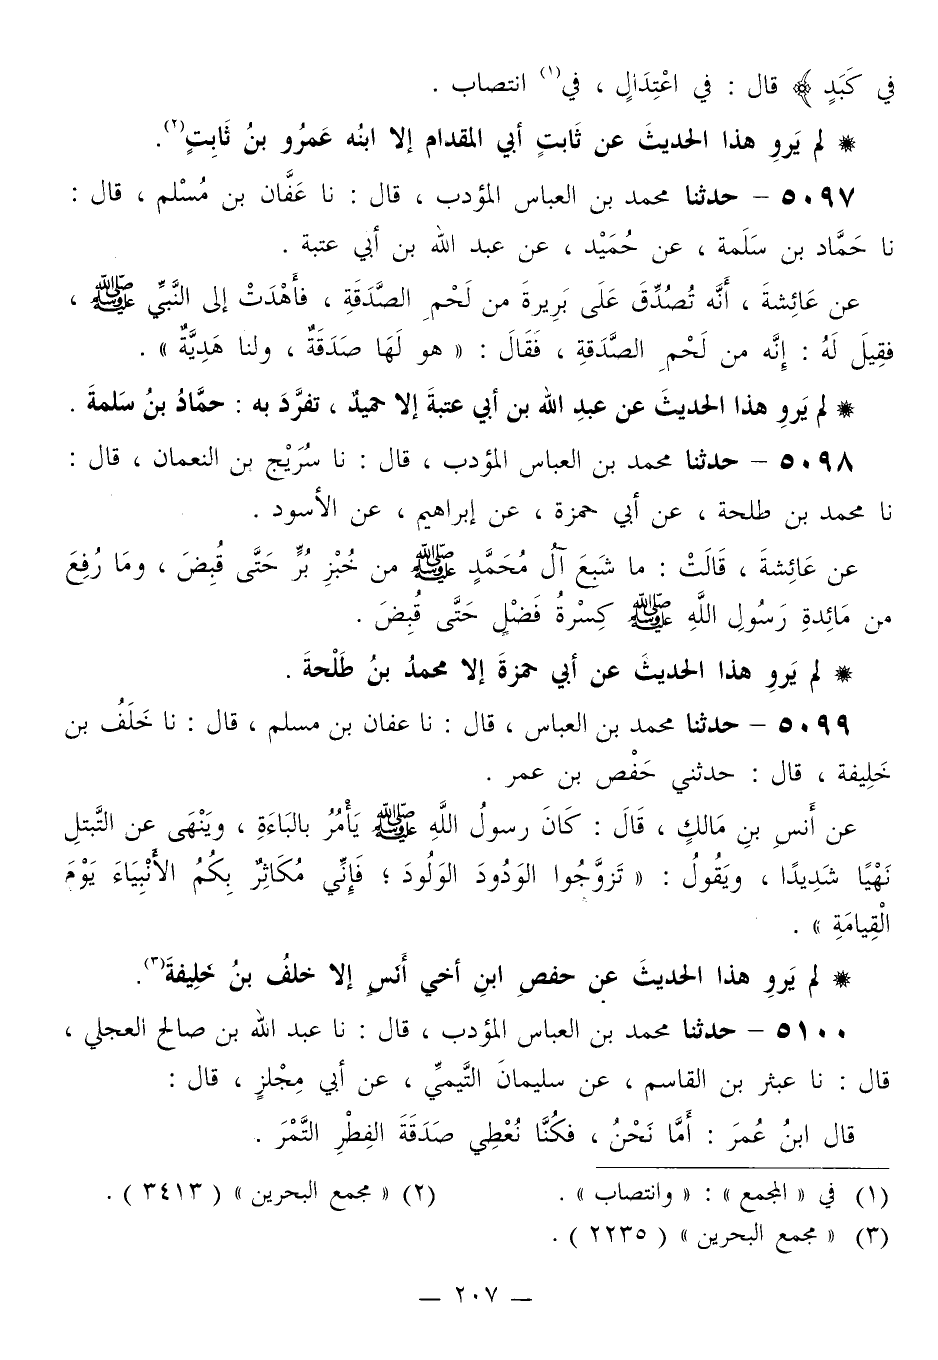 في كَبَدٍ ﴾ قال : في اعْتِدَالٍ ، في(١) انتصاب .
* لم يَروِ هذا الحديثَ عن ثَابتٍ أبي المقدام إلا ابنُه عَمرُو بنُ ثَابِتٍ(٢).
٥٠٩٧ – حدثنا محمد بن العباس المؤدب ، قال : نا عَفَّان بن مُسْلم ، قال :
نا حَمَّاد بن سَلَمة ، عن حُمَيْد ، عن عبد الله بن أبي عتبة .
عن عَائِشةَ ، أَنَّه تُصُدِّقَ عَلَى بَرِيرةَ من لَحْمِ الصَّدَقَةِ ، فأَهْدَتْ إلى النَّبيِّ ﷺ ،
فقِيلَ لَهُ : إِنَّه من لَحْمِ الصَّدَقةِ ، فَقَالَ : « هو لَهَا صَدَقَةٌ ، ولنا هَدِيَّةٌ » .
* لم يَروِ هذا الحديثَ عن عبدِ الله بن أبي عتبةَ إلا حميدٌ ، تفرَّدَ به : حمَّادُ بنُ سَلمةَ .
٥٠٩٨ – حدثنا محمد بن العباس المؤدب ، قال : نا سُرَيْج بن النعمان ، قال :
نا محمد بن طلحة ، عن أبي حمزة ، عن إبراهيم ، عن الأسود .
عن عَائِشةَ ، قَالَتْ : ما شَبَعَ آلُ مُحَمَّدٍ ﷺ من خُبْزِ بُرٍّ حَتَّى قُبِضَ ، ومَا رُفِعَ
من مَائِدةِ رَسُولِ اللَّهِ ﷺ كِسْرةُ فَضْلٍ حَتَّى قُبِضَ .
* لم يَروِ هذا الحديثَ عن أبي حمزةَ إلا محمدُ بنُ طَلْحةَ .
٥٠٩٩ – حدثنا محمد بن العباس ، قال : نا عفان بن مسلم ، قال : نا خَلَفُ بن
خَلِيفة ، قال : حدثني حَفْص بن عمر .
عن أَنسِ بنِ مَالكٍ ، قَالَ : كَانَ رسولُ اللَّهِ ﷺ يَأْمُرُ بالبَاءَةِ ، ويَنْهَى عن التَّبتلِ
نَهْيًا شَدِيدًا ، ويَقُولُ : « تَزوَّجُوا الوَدُودَ الوَلُودَ ؛ فَإِنِّي مُكَاثِرٌ بِكُمُ الأَنْبِيَاءَ يَوْمَ
الْقِيامَةِ » .
* لم يَروِ هذا الحديثَ عن حفصِ ابنِ أخي أَنَسٍ إلا خلفُ بنُ خَلِيفةَ(٣).
٥١٠٠ – حدثنا محمد بن العباس المؤدب ، قال : نا عبد الله بن صالح العجلي ،
قال : نا عبثر بن القاسم ، عن سليمانَ التَّيميِّ ، عن أبي مِجْلزٍ ، قال :
قال ابنُ عُمرَ : أَمَّا نَحْنُ ، فكُنَّا نُعْطِي صَدَقَةَ الفِطْرِ التَّمْرَ .
(١) في « المجمع » : « وانتصاب » . (٢) « مجمع البحرين » ( ٣٤١٣ ) .
(٣) « مجمع البحرين » ( ٢٢٣٥ ) .
– ٢٠٧ –